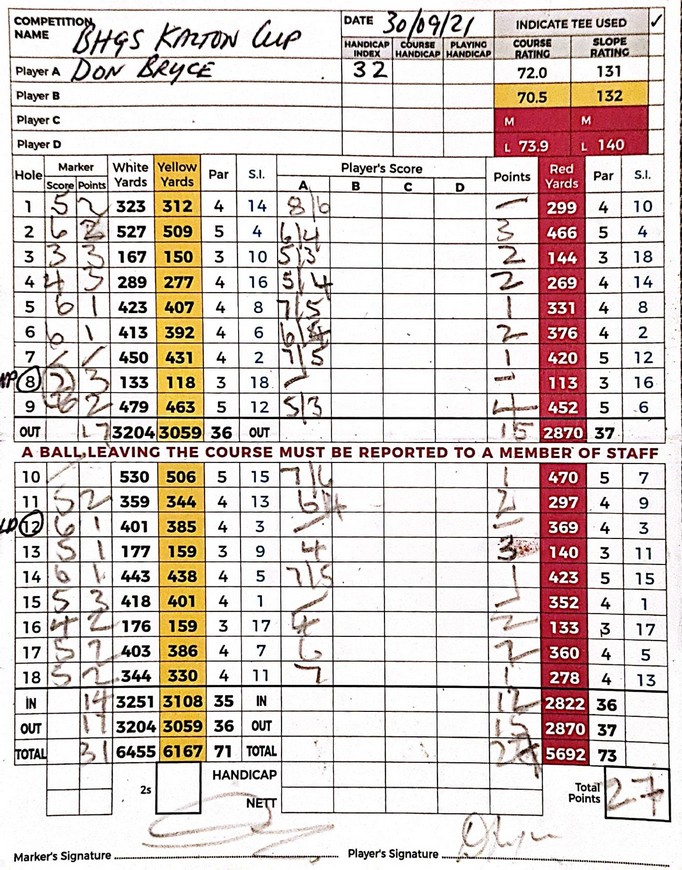 COMPETITION NAME BHGS KALTON CUP DATE 30/09/21 INDICATE TEE USED ✓
HANDICAP INDEX COURSE HANDICAP PLAYING HANDICAP COURSE RATING SLOPE RATING
Player A DON BRYCE 32 72.0 131
Player B 70.5 132
Player C M M
Player D L 73.9 L 140
Hole Marker White Yards Yellow Yards Par S.I. Player's Score Points Red Yards Par S.I.
Score Points A B C D
1 5 2 323 312 4 14 8/6 — 299 4 10
2 6 2 527 509 5 4 6/4 3 466 5 4
3 3 3 167 150 3 10 5/3 2 144 3 18
4 4 3 289 277 4 16 5/4 2 269 4 14
5 6 1 423 407 4 8 7/5 1 331 4 8
6 6 1 413 392 4 6 6/4 2 376 4 2
7 / / 450 431 4 2 7/5 1 420 5 12
NP 8 2 3 133 118 3 18 — — 113 3 16
9 6 2 479 463 5 12 5/3 4 452 5 6
OUT 17 3204 3059 36 OUT 15 2870 37
A BALL LEAVING THE COURSE MUST BE REPORTED TO A MEMBER OF STAFF
10 / 530 506 5 15 7/6 1 470 5 7
11 5 2 359 344 4 13 6/4 2 297 4 9
LD 12 6 1 401 385 4 3 — — 369 4 3
13 5 1 177 159 3 9 4 3 140 3 11
14 6 1 443 438 4 5 7/5 1 423 5 15
15 5 3 418 401 4 1 — — 352 4 1
16 4 2 176 159 3 17 4 2 133 3 17
17 5 2 403 386 4 7 6 2 360 4 5
18 5 2 344 330 4 11 7 1 278 4 13
IN 14 3251 3108 35 IN 12 2822 36
OUT 17 3204 3059 36 OUT 15 2870 37
TOTAL 31 6455 6167 71 TOTAL 27 5692 73
2s HANDICAP Total Points 27
NETT
Marker's Signature Player's Signature